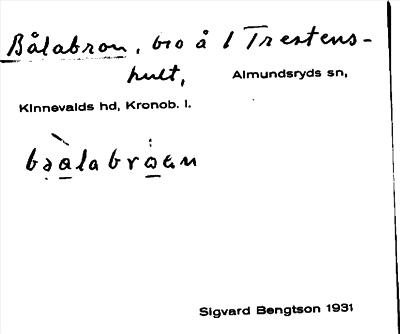 Bålabron, bro å 1 Trestens-
hult, Almundsryds sn,
Kinnevalds hd, Kronob. l.
Sigvard Bengtson 1931